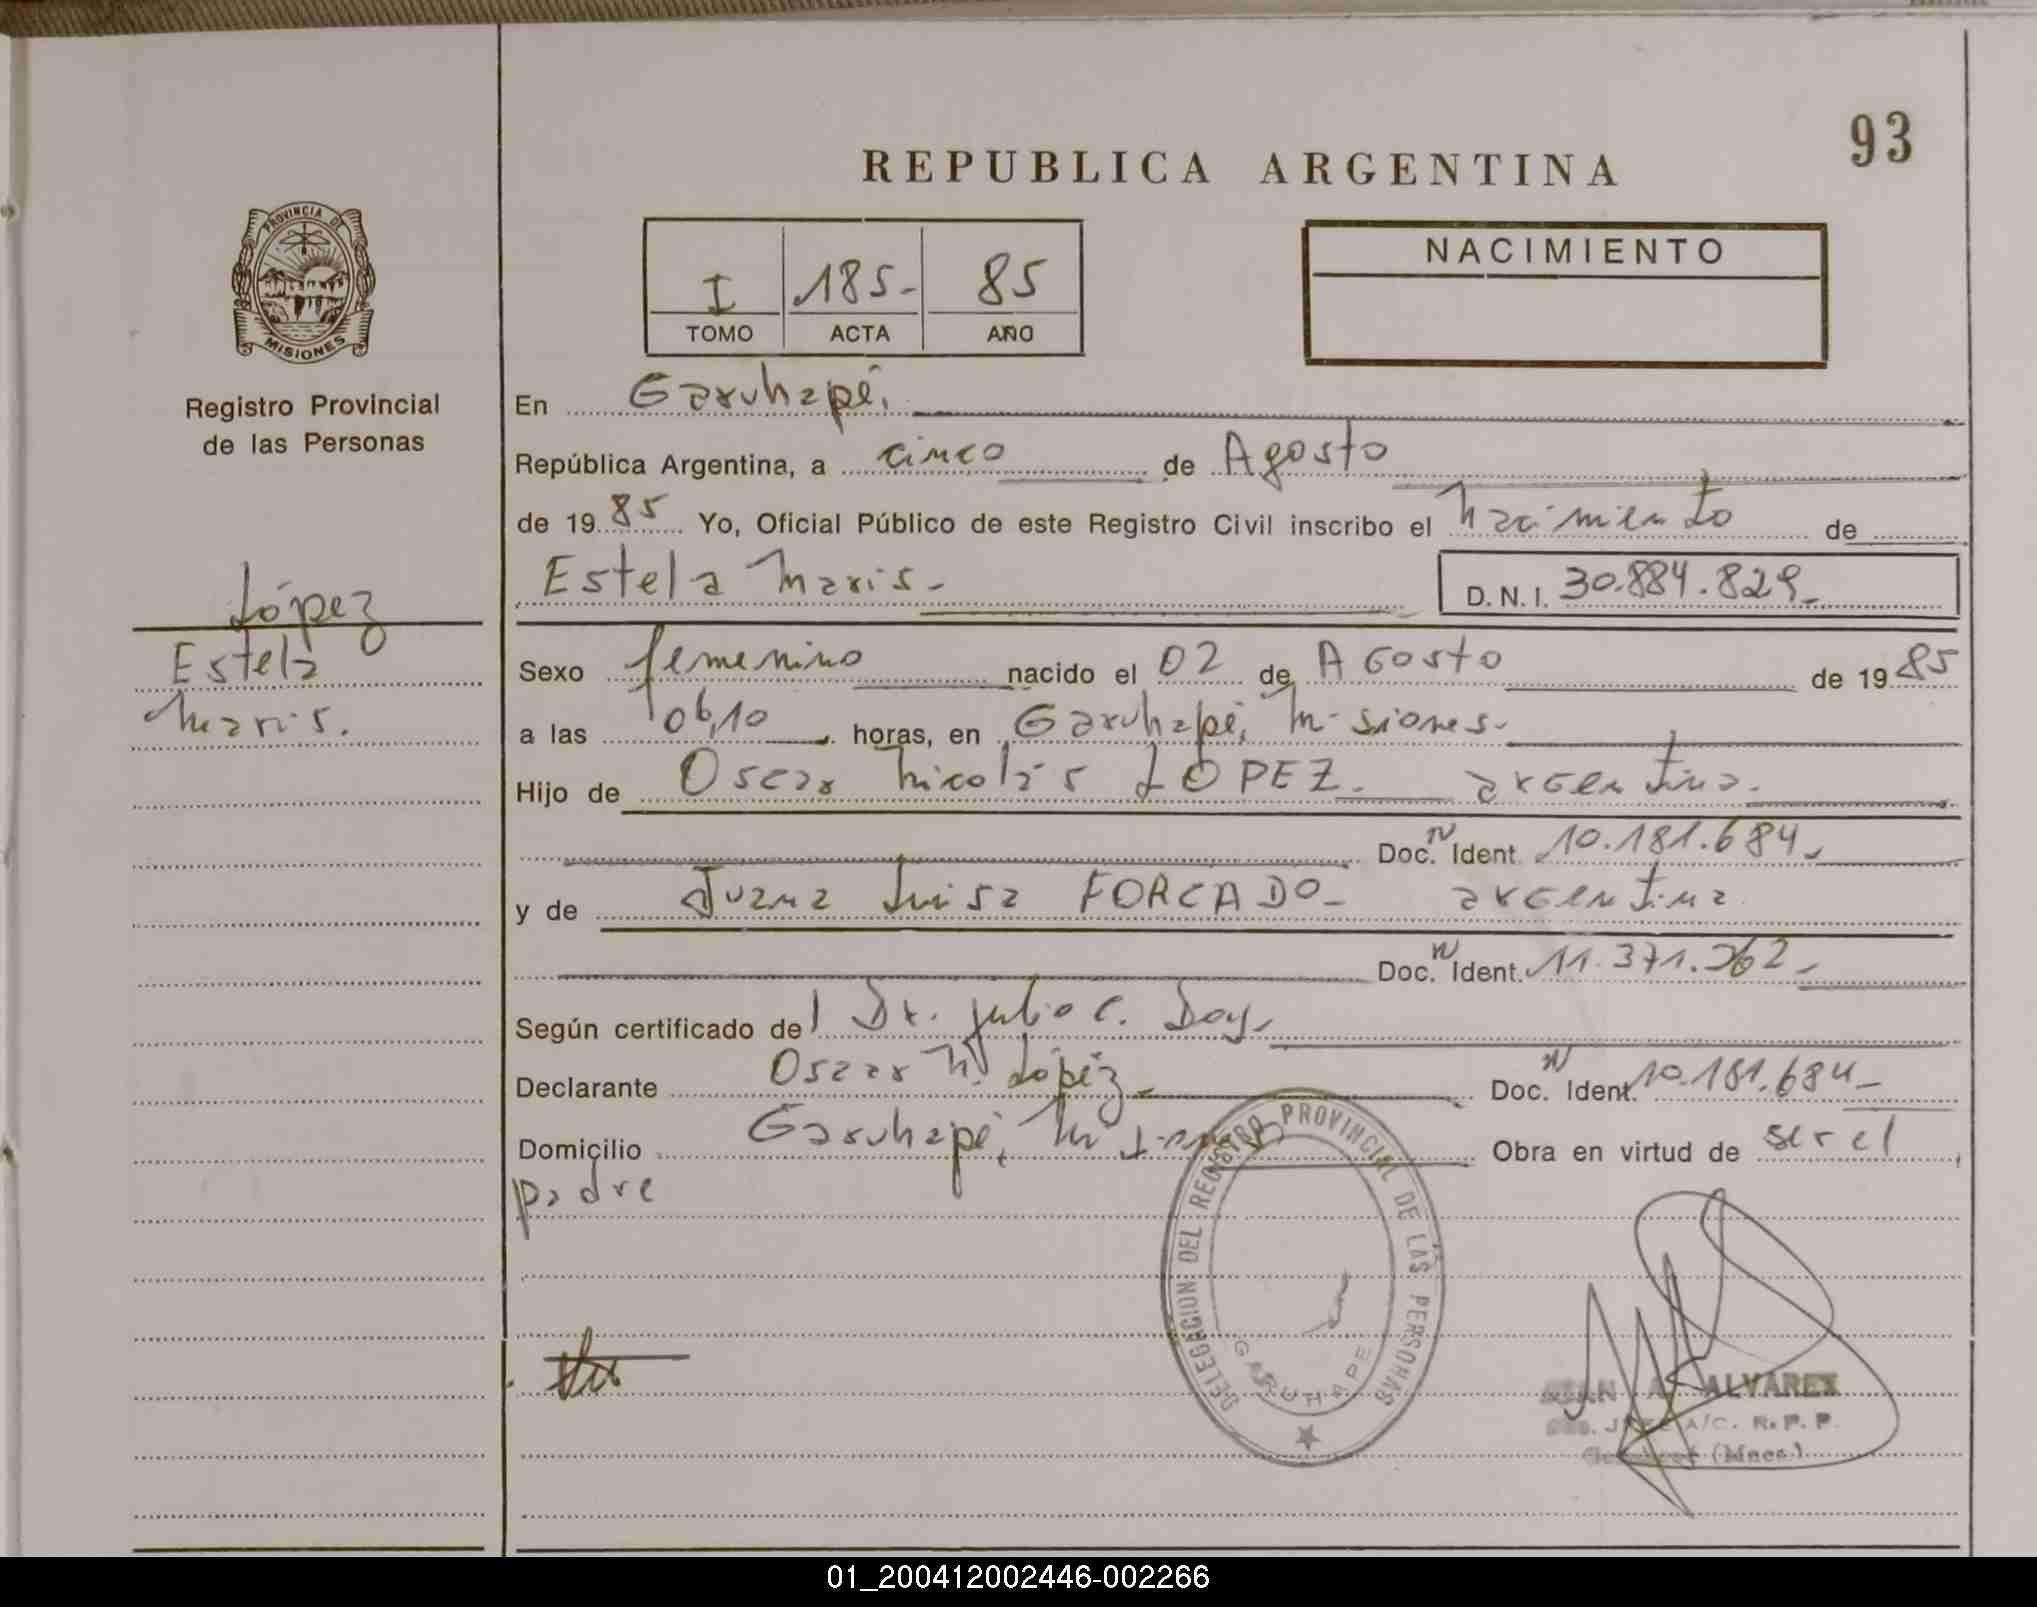 93
REPUBLICA ARGENTINA
PROVINCIA DE
MISIONES
Registro Provincial
de las Personas
I 185- 85
TOMO ACTA AÑO
NACIMIENTO
En Garuhapé,
República Argentina, a cinco de Agosto
de 19 85 Yo, Oficial Público de este Registro Civil inscribo el Nacimiento de
Estela Maris- D.N.I. 30.884.829-
López
Estela
Maris.
Sexo femenino nacido el 02 de AGosto de 19 85
a las 06,10 horas, en Garuhapé, Misiones-
Hijo de Oscar Nicolás LOPEZ. argentino.
Doc. N Ident. 10.181.684-
y de Juana Luisa FORCADO- argentina
Doc. N Ident. 11.371.262-
Según certificado del Dr. Julio C. Doy-
Declarante Oscar N. López- Doc. N Ident. 10.181.684-
Domicilio Garuhapé, Misiones Obra en virtud de ser el
padre
DELEGACION DEL REGISTRO PROVINCIAL DE LAS PERSONAS
GARUHAPE
JUAN A. ALVAREZ
JEFE A/C. R.P.P.
Garuhapé (Mnes.)
01_200412002446-002266